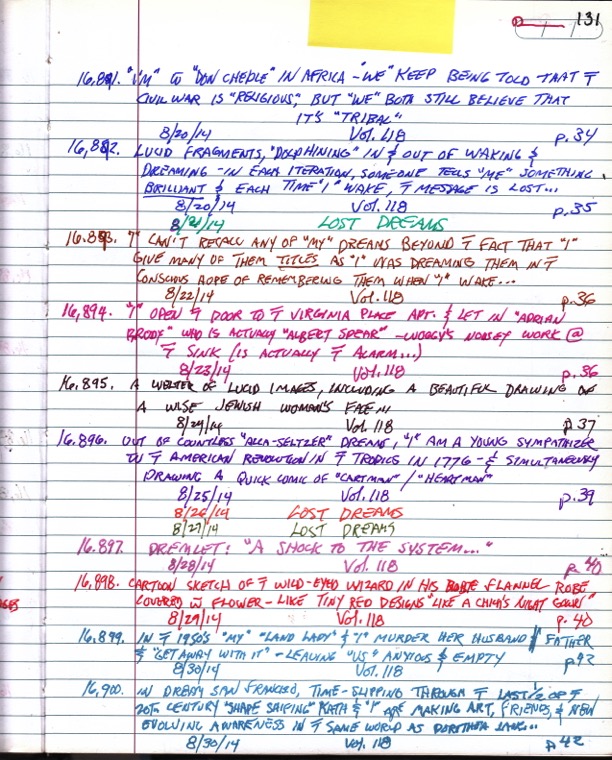 131
16,891. "I'M" TO "DON CHEDLE" IN AFRICA - "WE" KEEP BEING TOLD THAT T
CIVIL WAR IS "RELIGIOUS," BUT "WE" BOTH STILL BELIEVE THAT
IT'S "TRIBAL"
8/20/14 Vol. 118 p.34
16,892. LUCID FRAGMENTS, "DOLPHINING" IN & OUT OF WAKING &
DREAMING - IN EACH ITERATION, SOMEONE TELLS "ME" SOMETHING
BRILLIANT & EACH TIME "I" WAKE, T MESSAGE IS LOST...
8/20/14 Vol. 118 p.35
8/21/14 LOST DREAMS
16.893. "I" CAN'T RECALL ANY OF "MY" DREAMS BEYOND T FACT THAT "I"
GIVE MANY OF THEM TITLES AS "I" WAS DREAMING THEM IN T
CONSCIOUS HOPE OF REMEMBERING THEM WHEN "I" WAKE...
8/22/14 Vol. 118 p.36
16,894. "I" OPEN T DOOR TO T VIRGINIA PLACE APT. & LET IN "ADRIAN
BRODY" WHO IS ACTUALLY "ALBERT SPEAR" - WOODY'S NOISEY WORK @
T SINK (IS ACTUALLY T ALARM...)
8/23/14 Vol. 118 p.36
16.895. A WELTER OF LUCID IMAGES, INCLUDING A BEAUTIFUL DRAWING OF
A WISE JEWISH WOMAN'S FACE...
8/24/14 Vol. 118 p.37
16.896. OUT OF COUNTLESS "ALKA-SELTZER" DREAMS, "I" AM A YOUNG SYMPATHIZER
TO T AMERICAN REVOLUTION IN T TROPICS IN 1776 - & SIMULTANEOUSLY
DRAWING A QUICK COMIC OF "CARTMAN" / "HEARTMAN"
8/25/14 Vol. 118 p.39
8/26/14 LOST DREAMS
8/27/14 LOST DREAMS
16.897. DREMLET: "A SHOCK TO THE SYSTEM..."
8/28/14 Vol. 118 p.40
16,898. CARTOON SKETCH OF T WILD-EYED WIZARD IN HIS FLANNEL ROBE
COVERED W FLOWER - LIKE TINY RED DESIGNS "LIKE A CHILD'S NIGHT GOWN"
8/29/14 Vol. 118 p. 40
16,899. IN T 1950'S "MY" "LAND LADY" & "I" MURDER HER HUSBAND / FATHER
& "GET AWAY WITH IT" - LEAVING "US" ANXIOUS & EMPTY
8/30/14 Vol. 118 p42
16,900. IN DREARY SAN FRANCISCO, TIME-SLIPPING THROUGH T LAST 1/2 OF T
20TH CENTURY "SHAPE SHIFING" KATH & "I" ARE MAKING ART, FRIENDS, & NEW
EVOLVING AWARENESS IN T SAME WORLD AS DOROTHEA
8/30/14 Vol. 118 p42